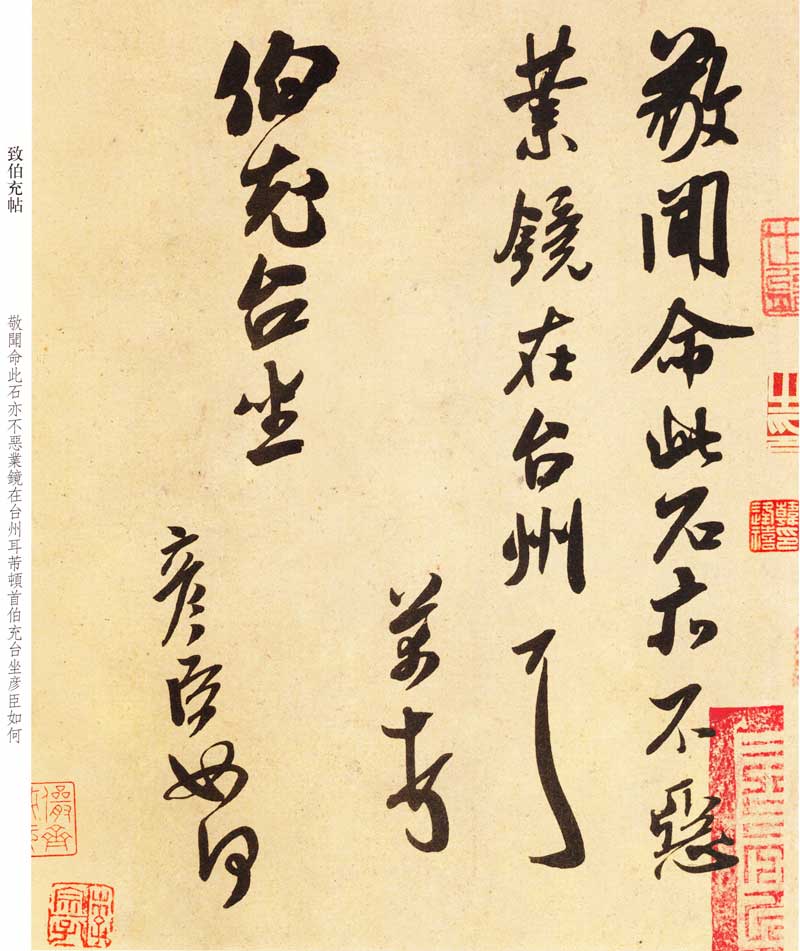 敬聞命此石亦不惡
業鏡在台州耳
芾頓首
伯充台坐
彦臣如何
致伯充帖
敬聞命此石亦不惡業鏡在台州耳芾頓首伯充台坐彦臣如何